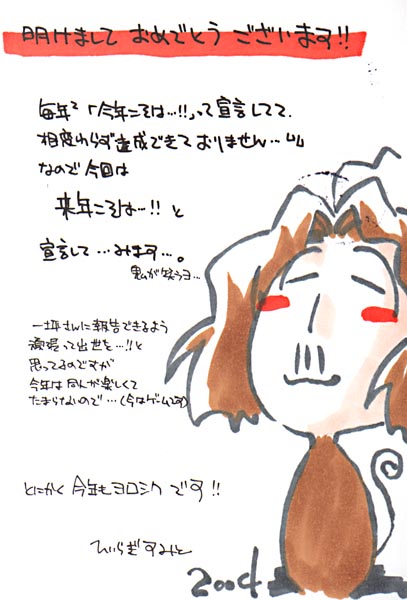 明けまして おめでとう ございます!!
毎年「今年こそは…!!」って宣言してて、
相変わらず達成できておりません…
なので今回は
来年こそは…!! と
宣言して…みます…。
鬼が笑うヨ…
一坪さんに報告できるよう
頑張って出世を…!!と
思ってるのですが
今年は同人が楽しくて
たまらないので…(今はゲーム
とにかく 今年もヨロシク です!!
ひいらぎすみと
2004